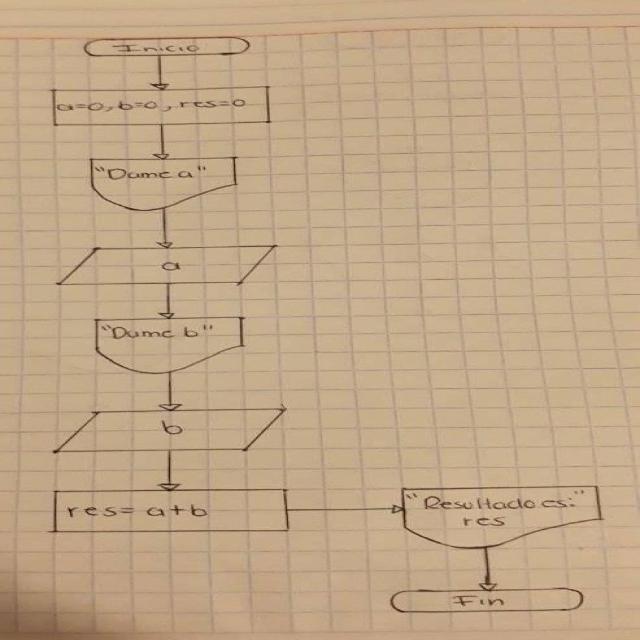 Inicio
a=0, b=0, res=0
"Dame a"
a
"Dame b"
b
res= a+b
"Resultado es:"
res
Fin